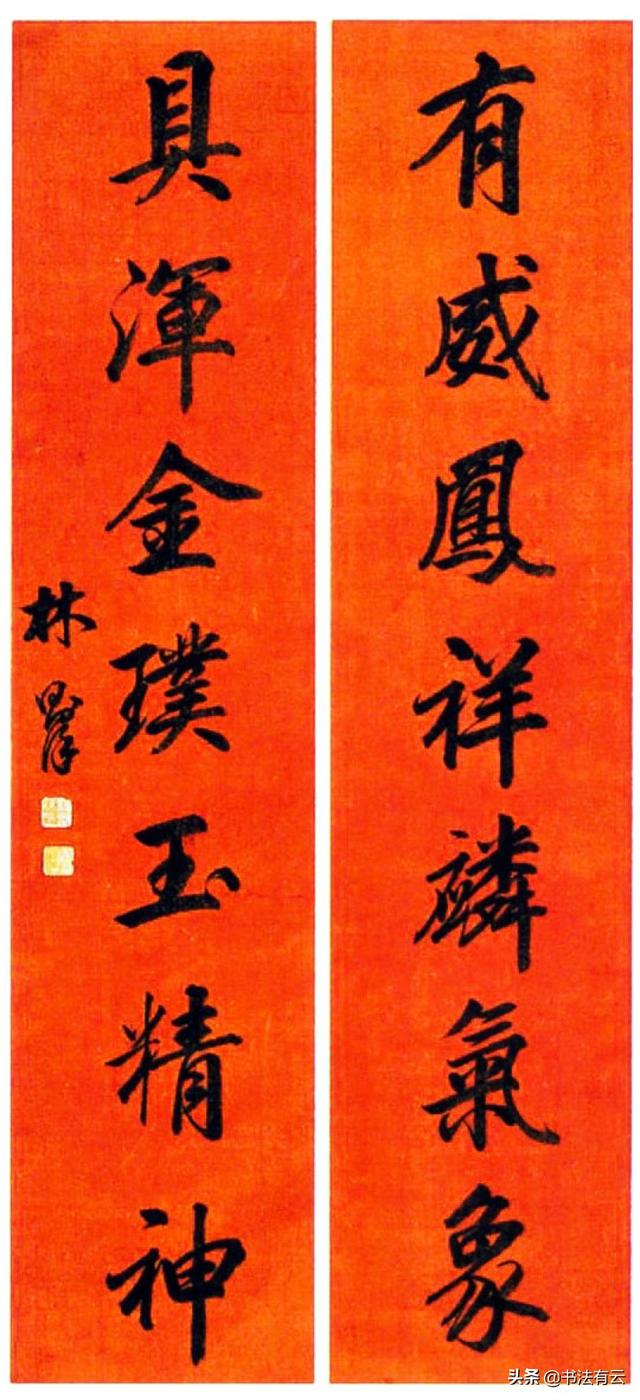 有威鳳祥麟氣象
具渾金璞玉精神
林則徐
头条 @书法有云